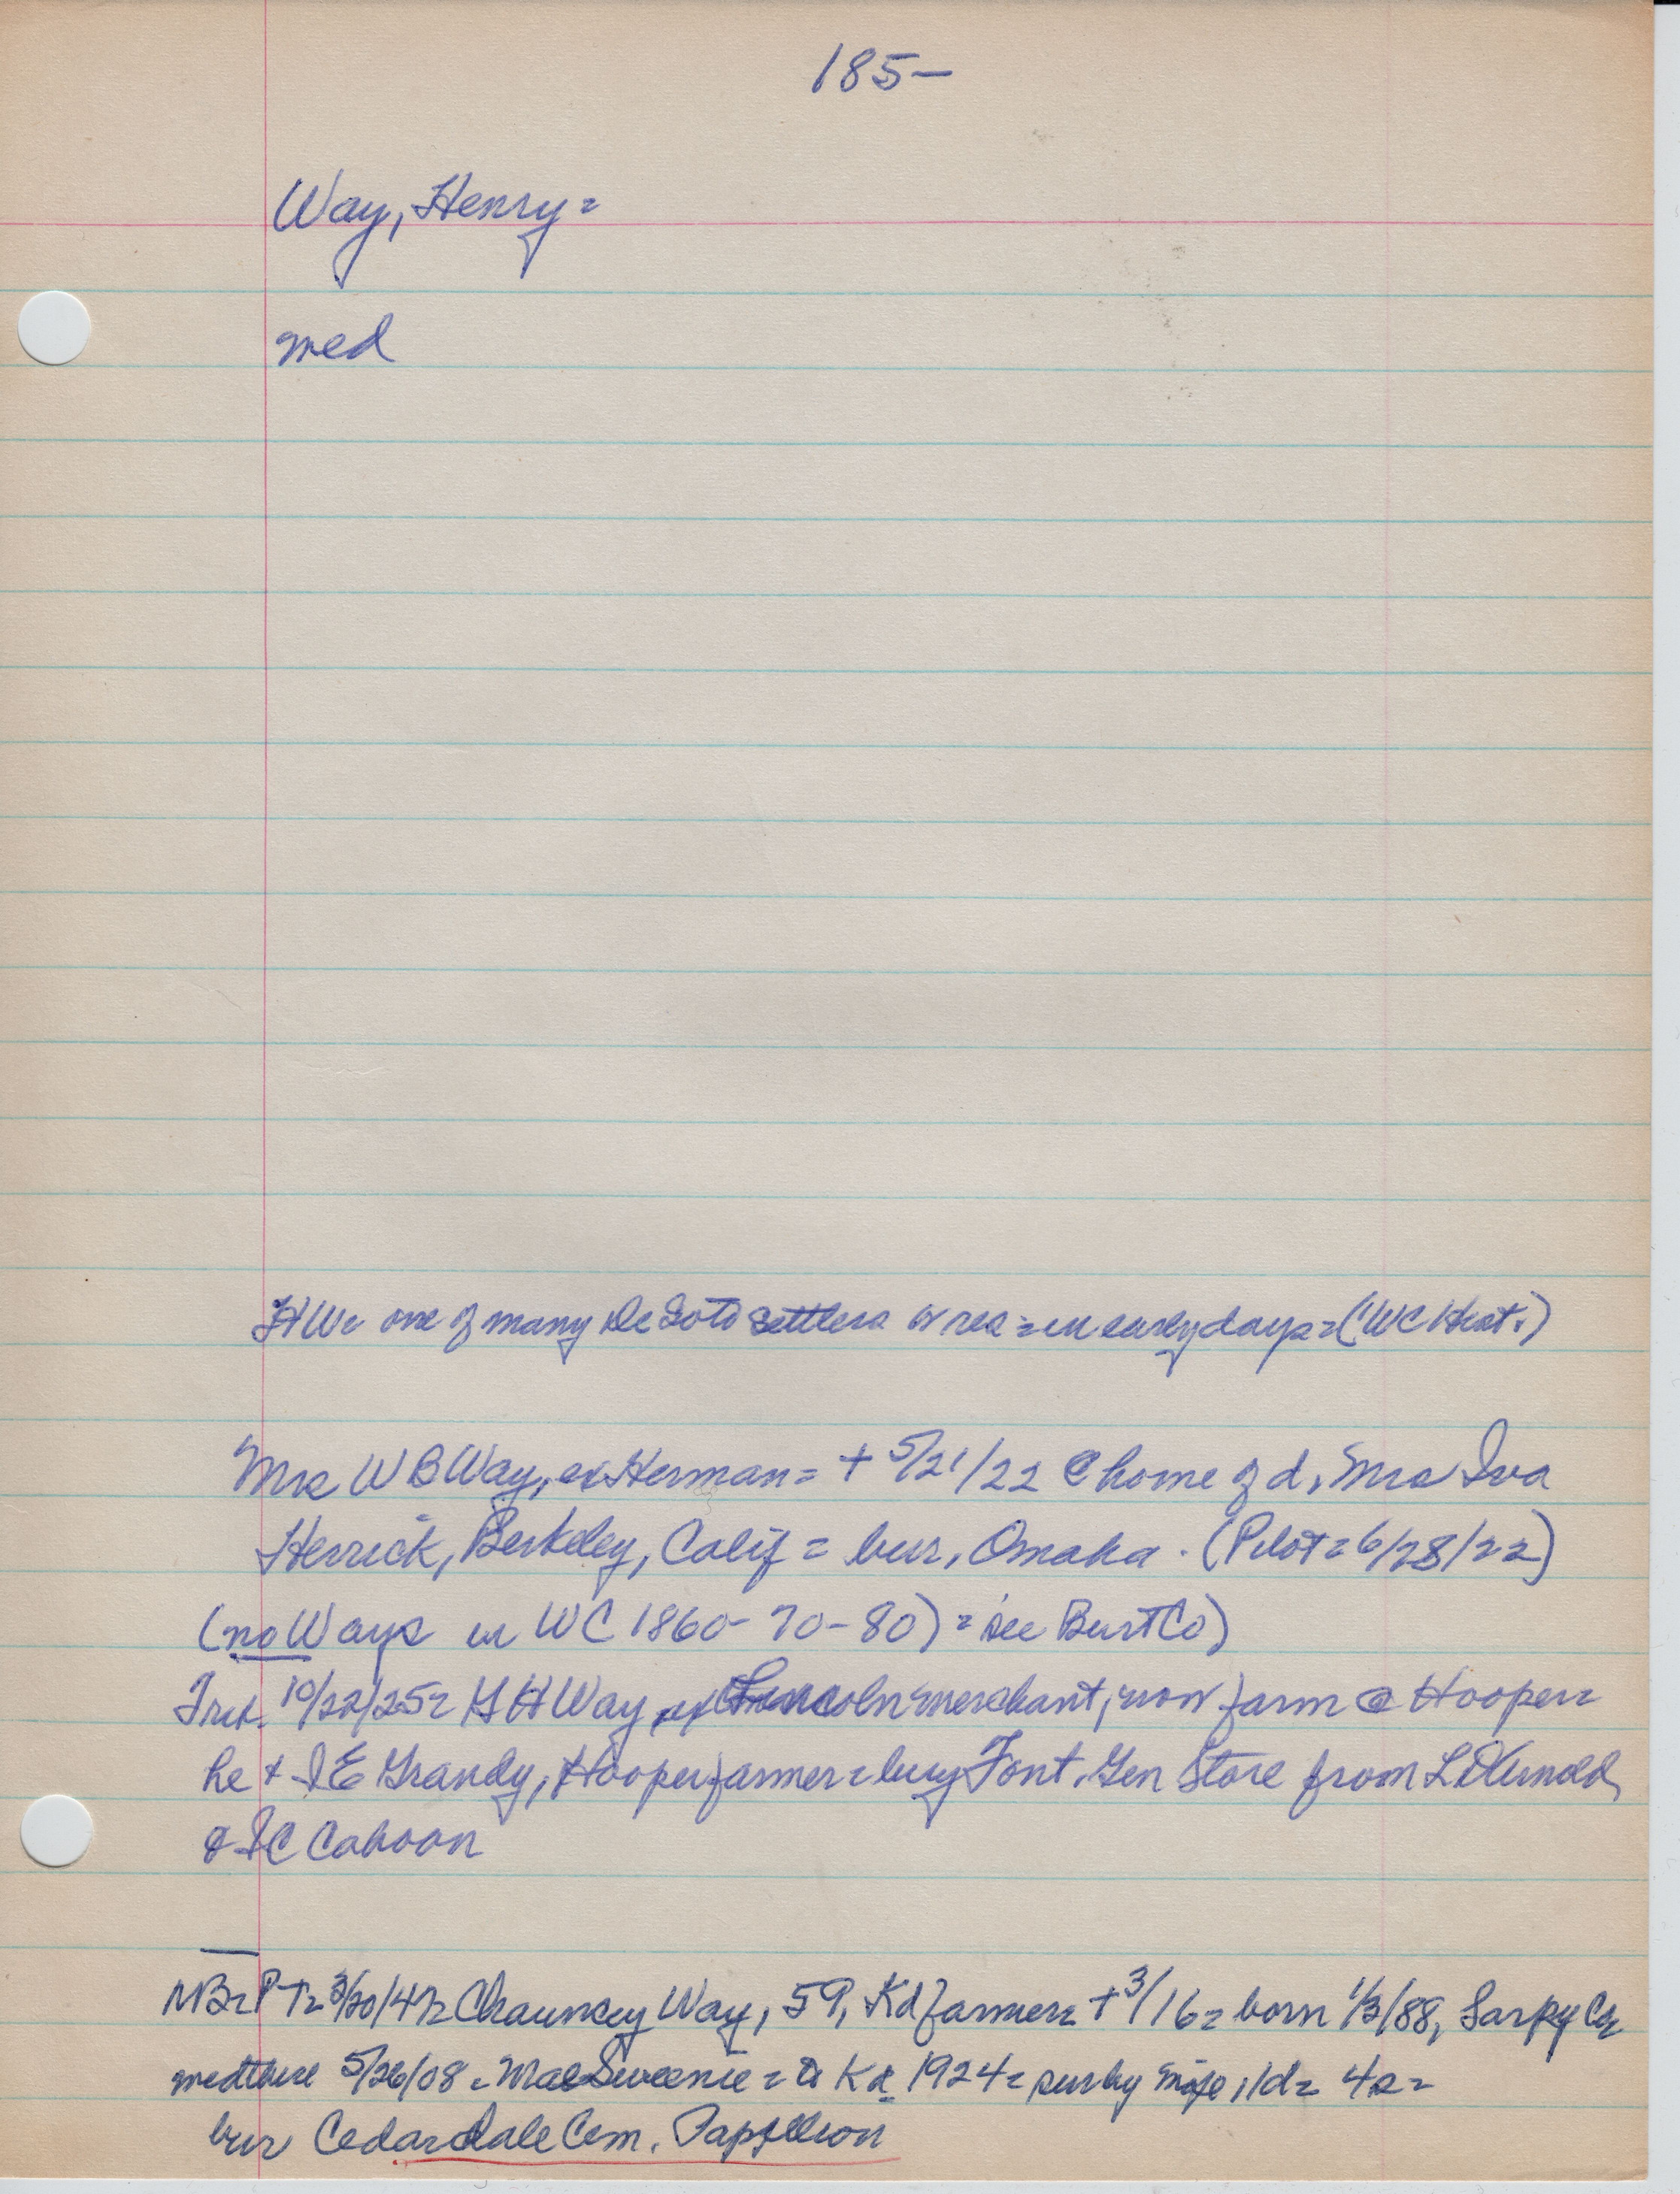 185-
Way, Henry=
med
HW= one of many De Soto settlers or res = in early days = (WC Hist.)
Mrs W B Way, ex Herman = + 5/21/22 @ home of d, Mrs Iva
Herrick, Berkeley, Calif = bur, Omaha. (Pilot = 6/28/22)
(no Ways in WC 1860-70-80) = see Burt Co)
10/22/25= H Way, ex Lincoln merchant, now farm @ Hooper=
he + I E Grandy, Hooper farmer = buy Font. Gen Store from
& C Cahoon
PT= 3/20/47= Chauncey Way, 59, Kd farmer= + 3/16= born 1/3/88, Sarpy Co=
med there 5/26/08 = Mae Sweenie = Kd 1924= sur by 1 d= 4 s=
bur Cedardale Cem. Papillion